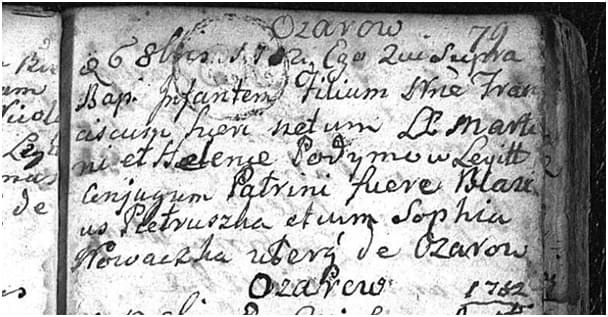 Ozarow 79
D 6 8bris 1782 Ego Qui Supra
Bap. Infantem Filium Nne Fran
ciscum heri natum LL Marti
ni et Helene Podymow Legitt
Conjugum Patrini fuere Blazi
us Pietruszka et cum Sophia
Nowaczka uterq de Ozarow
Ozarow 1782
de